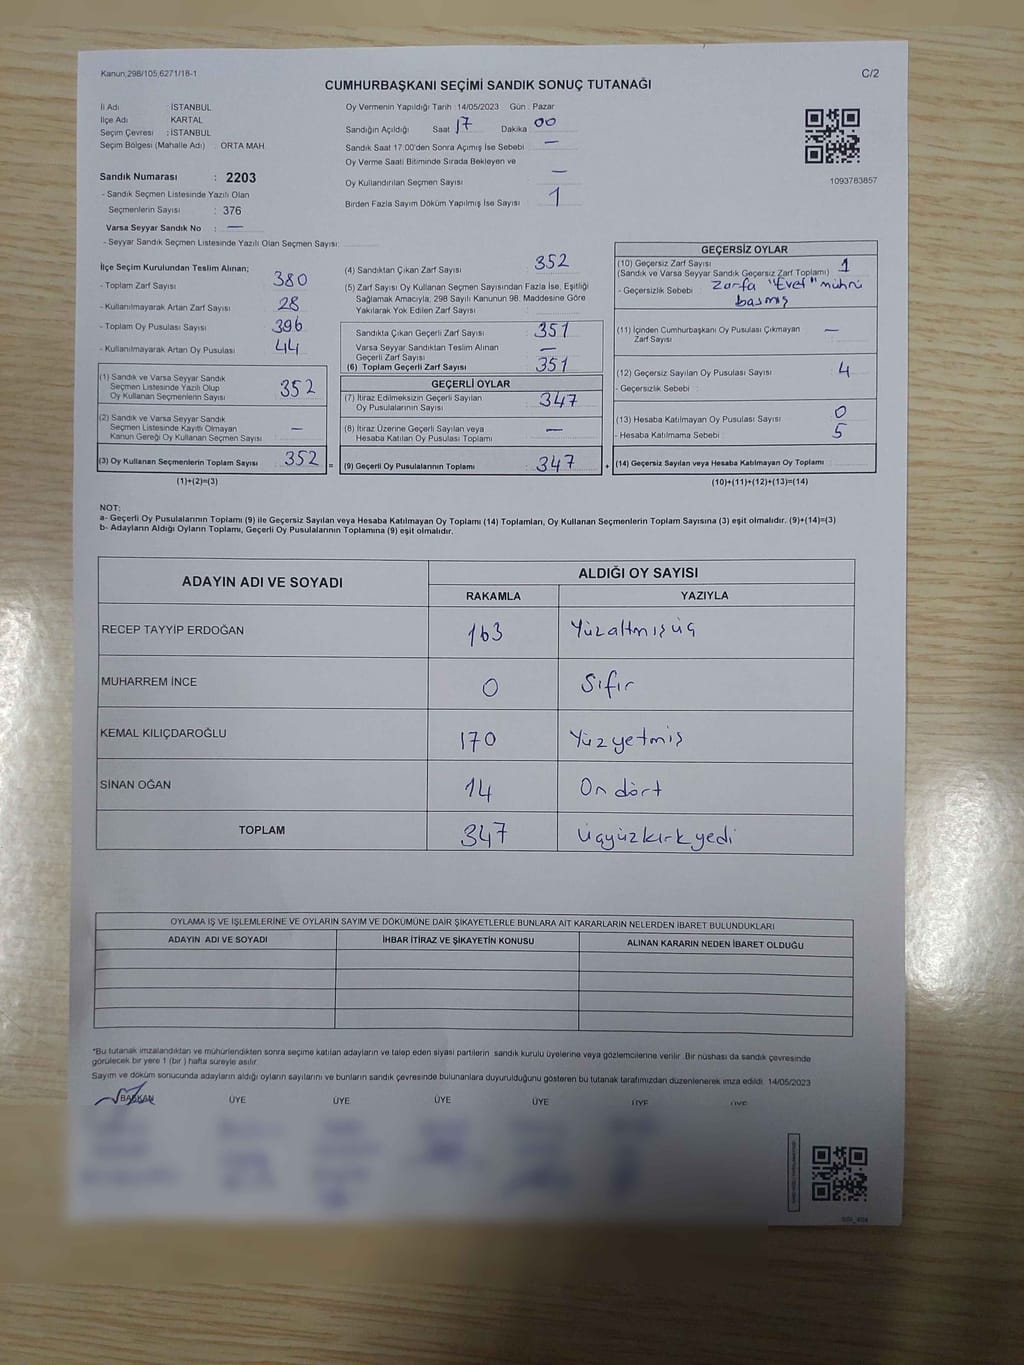 Kanun;298/105;6271/18-1
C/2
CUMHURBAŞKANI SEÇİMİ SANDIK SONUÇ TUTANAĞI
İl Adı : İSTANBUL
İlçe Adı KARTAL
Seçim Çevresi : İSTANBUL
Seçim Bölgesi (Mahalle Adı) : ORTA MAH.
Sandık Numarası : 2203
- Sandık Seçmen Listesinde Yazılı Olan
Seçmenlerin Sayısı : 376
Varsa Seyyar Sandık No : —
- Seyyar Sandık Seçmen Listesinde Yazılı Olan Seçmen Sayısı:
Oy Vermenin Yapıldığı Tarih :14/05/2023 Gün : Pazar
Sandığın Açıldığı Saat 17 Dakika 00
Sandık Saat 17:00'den Sonra Açımış İse Sebebi : —
Oy Verme Saati Bitiminde Sırada Bekleyen ve
Oy Kullandırılan Seçmen Sayısı : —
Birden Fazla Sayım Döküm Yapılmış İse Sayısı : 1
1093783857
İlçe Seçim Kurulundan Teslim Alınan;
- Toplam Zarf Sayısı : 380
- Kullanılmayarak Artan Zarf Sayısı : 28
- Toplam Oy Pusulası Sayısı : 396
- Kullanılmayarak Artan Oy Pusulası : 44
(1) Sandık ve Varsa Seyyar Sandık
Seçmen Listesinde Yazılı Olup
Oy Kullanan Seçmenlerin Sayısı : 352
(2) Sandık ve Varsa Seyyar Sandık
Seçmen Listesinde Kayıtlı Olmayan
Kanun Gereği Oy Kullanan Seçmen Sayısı : —
(3) Oy Kullanan Seçmenlerin Toplam Sayısı : 352 =
(1)+(2)=(3)
(4) Sandıktan Çıkan Zarf Sayısı : 352
(5) Zarf Sayısı Oy Kullanan Seçmen Sayısından Fazla İse, Eşitliği
Sağlamak Amacıyla, 298 Sayılı Kanunun 98. Maddesine Göre
Yakılarak Yok Edilen Zarf Sayısı :
Sandıkta Çıkan Geçerli Zarf Sayısı : 351
Varsa Seyyar Sandıktan Teslim Alınan
Geçerli Zarf Sayısı : —
(6) Toplam Geçerli Zarf Sayısı : 351
GEÇERLİ OYLAR
(7) İtiraz Edilmeksizin Geçerli Sayılan
Oy Pusulalarının Sayısı : 347
(8) İtiraz Üzerine Geçerli Sayılan veya
Hesaba Katılan Oy Pusulası Toplamı : —
(9) Geçerli Oy Pusulalarının Toplamı : 347 +
GEÇERSİZ OYLAR
(10) Geçersiz Zarf Sayısı
(Sandık ve Varsa Seyyar Sandık Geçersiz Zarf Toplamı) : 1
- Geçersizlik Sebebi : Zarfa "Evet" mührü
basmış
(11) İçinden Cumhurbaşkanı Oy Pusulası Çıkmayan
Zarf Sayısı : —
(12) Geçersiz Sayılan Oy Pusulası Sayısı : 4
- Geçersizlik Sebebi :
(13) Hesaba Katılmayan Oy Pusulası Sayısı : 0
- Hesaba Katılmama Sebebi : 5
(14) Geçersiz Sayılan veya Hesaba Katılmayan Oy Toplamı :
(10)+(11)+(12)+(13)=(14)
NOT:
a- Geçerli Oy Pusulalarının Toplamı (9) ile Geçersiz Sayılan veya Hesaba Katılmayan Oy Toplamı (14) Toplamları, Oy Kullanan Seçmenlerin Toplam Sayısına (3) eşit olmalıdır. (9)+(14)=(3)
b- Adayların Aldığı Oyların Toplamı, Geçerli Oy Pusulalarının Toplamına (9) eşit olmalıdır.
ADAYIN ADI VE SOYADI ALDIĞI OY SAYISI
RAKAMLA YAZIYLA
RECEP TAYYİP ERDOĞAN 163 Yüzaltmışüç
MUHARREM İNCE 0 Sıfır
KEMAL KILIÇDAROĞLU 170 Yüzyetmiş
SİNAN OĞAN 14 On dört
TOPLAM 347 Üçyüzkırkyedi
OYLAMA İŞ VE İŞLEMLERİNE VE OYLARIN SAYIM VE DÖKÜMÜNE DAİR ŞİKAYETLERLE BUNLARA AİT KARARLARIN NELERDEN İBARET BULUNDUKLARI
ADAYIN ADI VE SOYADI İHBAR İTİRAZ VE ŞİKAYETİN KONUSU ALINAN KARARIN NEDEN İBARET OLDUĞU
*Bu tutanak imzalandıktan ve mühürlendikten sonra seçime katılan adayların ve talep eden siyasi partilerin sandık kurulu üyelerine veya gözlemcilerine verilir. Bir nüshası da sandık çevresinde
görülecek bir yere 1 (bir ) hafta süreyle asılır.
Sayım ve döküm sonucunda adayların aldığı oyların sayılarını ve bunların sandık çevresinde bulunanlara duyurulduğunu gösteren bu tutanak tarafımızdan düzenlenerek imza edildi. 14/05/2023
BAŞKAN ÜYE ÜYE ÜYE ÜYE ÜYE ÜYE